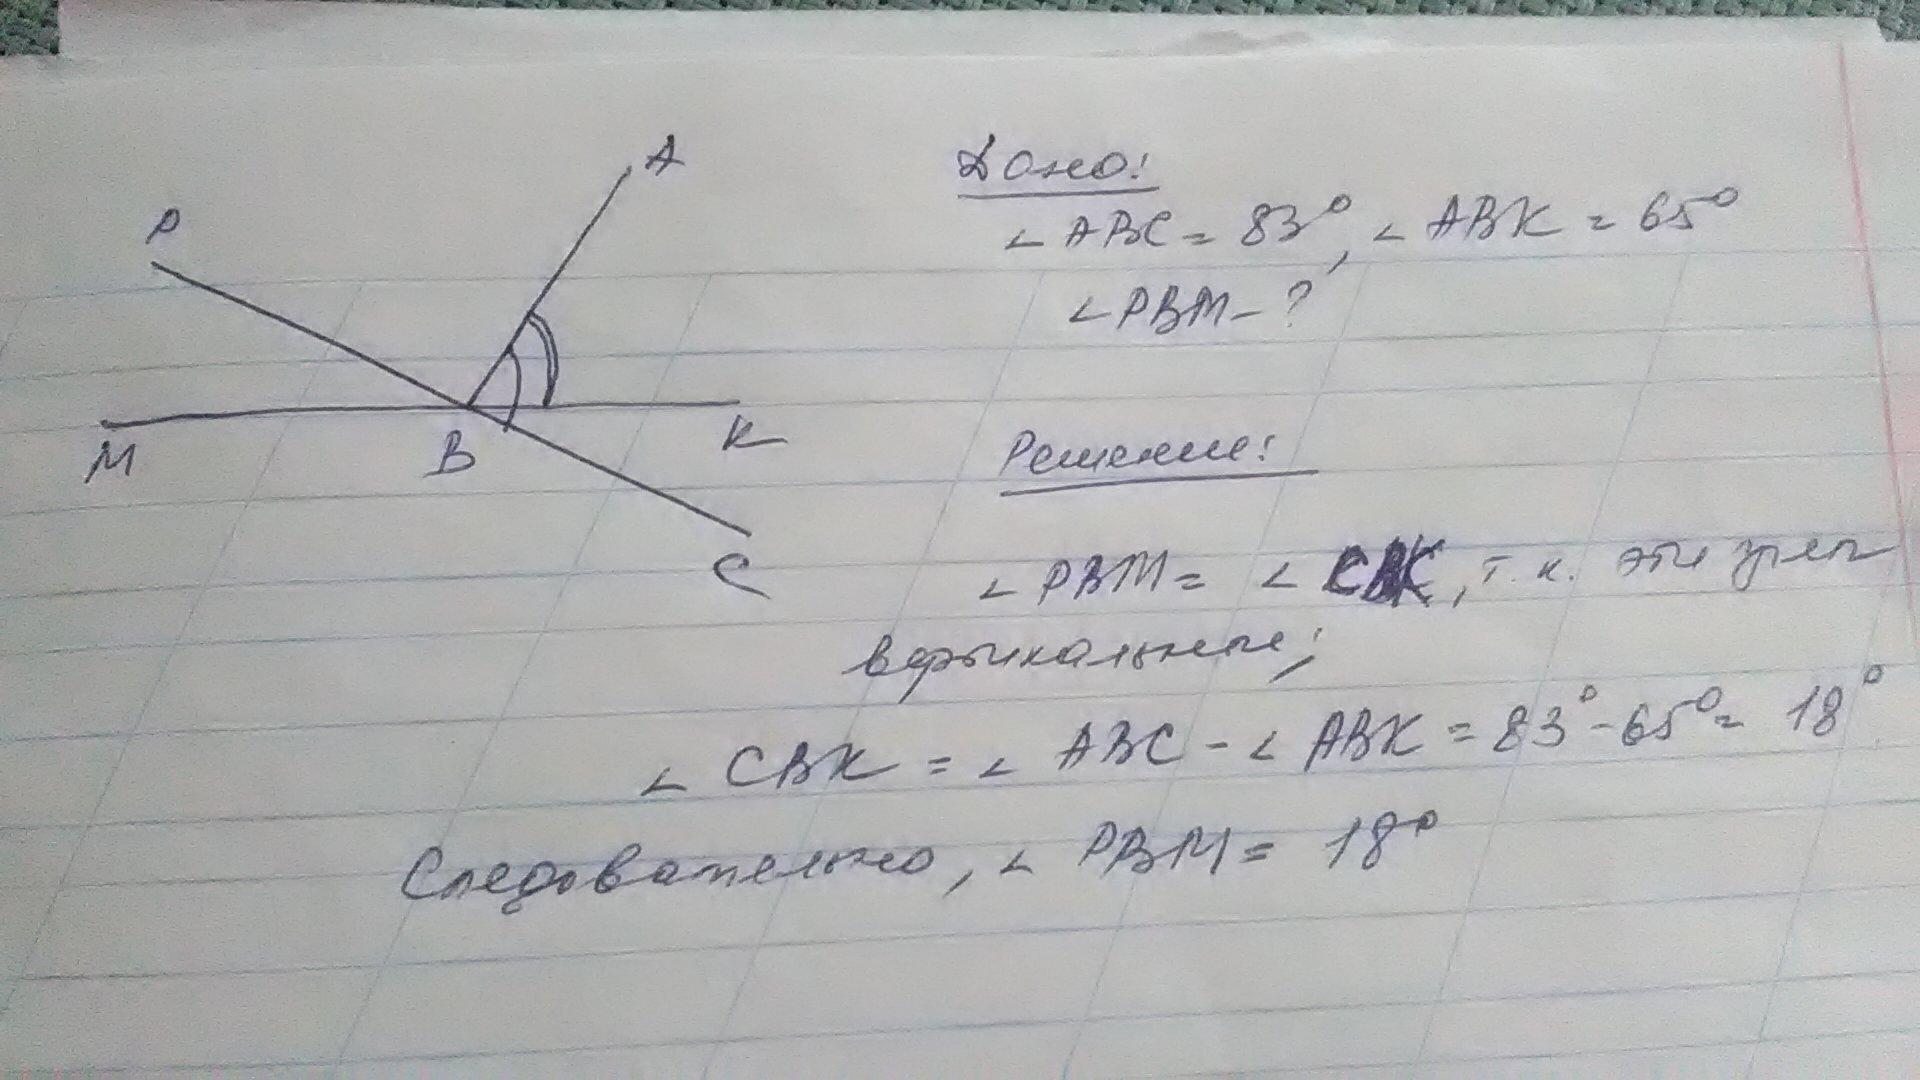 A
P
M
B
K
C
Дано:
∠ABC = 83°, ∠ABK = 65°
∠PBM - ?
Решение:
∠PBM = ∠CBK, т.к. эти углы
вертикальные;
∠CBK = ∠ABC - ∠ABK = 83° - 65° = 18°
Следовательно, ∠PBM = 18°